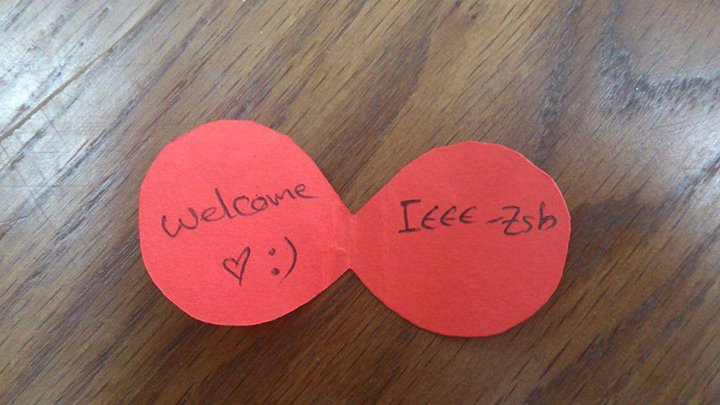 Welcome
♡ :)
IEEE-Zsb